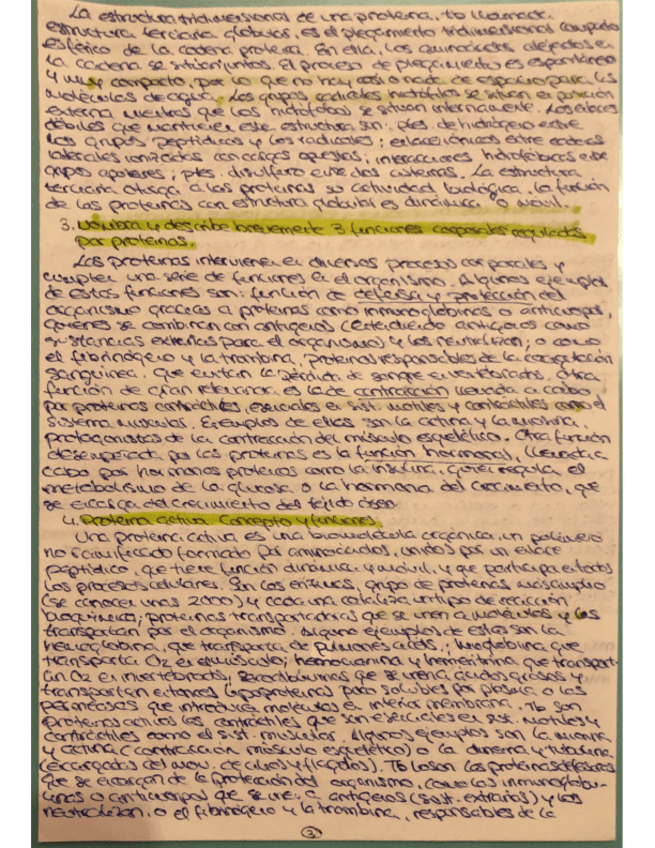 La estructura tridimensional de una proteína, tb llamada
estructura terciaria globular, es el plegamiento tridimensional compacto
esférico de la cadena proteica. En ella, los aminoácidos alejados en
la cadena se sitúan juntos. El proceso de plegamiento es espontáneo
y muy compacto, por lo que no hay casi o nada de espacio para las
moléculas de agua. Los grupos radicales hidrófilos se sitúan en posición
externa mientras que los hidrófobos se sitúan internamente. Los enlaces
débiles que mantienen esa estructura son: ptes. de hidrógeno entre
los grupos peptídicos y los radicales; enlaces iónicos entre cadenas
laterales ionizadas con cargas opuestas; interacciones hidrofóbicas entre
grupos apolares; ptes. disulfuro entre dos cisteínas. La estructura
terciaria otorga a las proteínas su actividad biológica. La función
de las proteínas con estructura globular es dinámica o móvil.
3. Nombra y describe brevemente 3 funciones corporales reguladas
por proteínas.
Las proteínas intervienen en diversos procesos corporales y
cumplen una serie de funciones en el organismo. Algunos ejemplos
de estas funciones son: función de defensa y protección del
organismo gracias a proteínas como inmunoglobinas o anticuerpos,
quienes se combinan con antígenos (entendiendo antígenos como
sustancias extrañas para el organismo) y los neutralizan; o como
el fibrinógeno y la trombina, proteínas responsables de la coagulación
sanguínea, que evitan la pérdida de sangre en vertebrados. Otra
función de gran relevancia es la de contracción llevada a cabo
por proteínas contráctiles, esenciales en sist. motiles y contráctiles como el
sistema muscular. Ejemplos de ellas son la actina y la miosina,
protagonistas de la contracción del músculo esquelético. Otra función
desempeñada por las proteínas es la función hormonal, llevada a
cabo por hormonas proteicas como la insulina, quien regula el
metabolismo de la glucosa o la hormona del crecimiento, que
se encarga del crecimiento del tejido óseo.
4. Proteína activa. Concepto y funciones.
Una proteína activa es una biomolécula orgánica, un polímero
no ramificado formado por aminoácidos, unidos por un enlace
peptídico, que tiene función dinámica y móvil, y que participa en todos
los procesos celulares. Son las enzimas, grupo de proteínas más amplio
(se conocen unas 2000) y cada una cataliza un tipo de reacción
bioquímica; proteínas transportadoras que se unen a moléculas y las
transportan por el organismo. Alguno ejemplos de estas son la
hemoglobina, que transporta de pulmones a céls.; mioglobina que
transporta O2 en músculo; hemocianina y hemeritrina que transport-
an O2 en invertebrados; que se une a ácidos grasos y
transportan entonces (lipoproteína) para solubles por plasma o las
permeasas que introducen moléculas en interior membrana. Tb son
proteínas activas las contráctiles que son esenciales en sist. motiles y
contráctiles como el sist. muscular. Algunos ejemplos son la miosina
y actina (contracción músculo esquelético) o la dineína y tubulina
(encargadas del mov. de cilios y flagelos). Tb lo son las proteínas defensoras
que se encargan de la protección del organismo, como las inmunoglobu-
linas o anticuerpos que se unen a antígenos (sust. extrañas) y los
neutralizan, o el fibrinógeno y la trombina, responsables de la
3